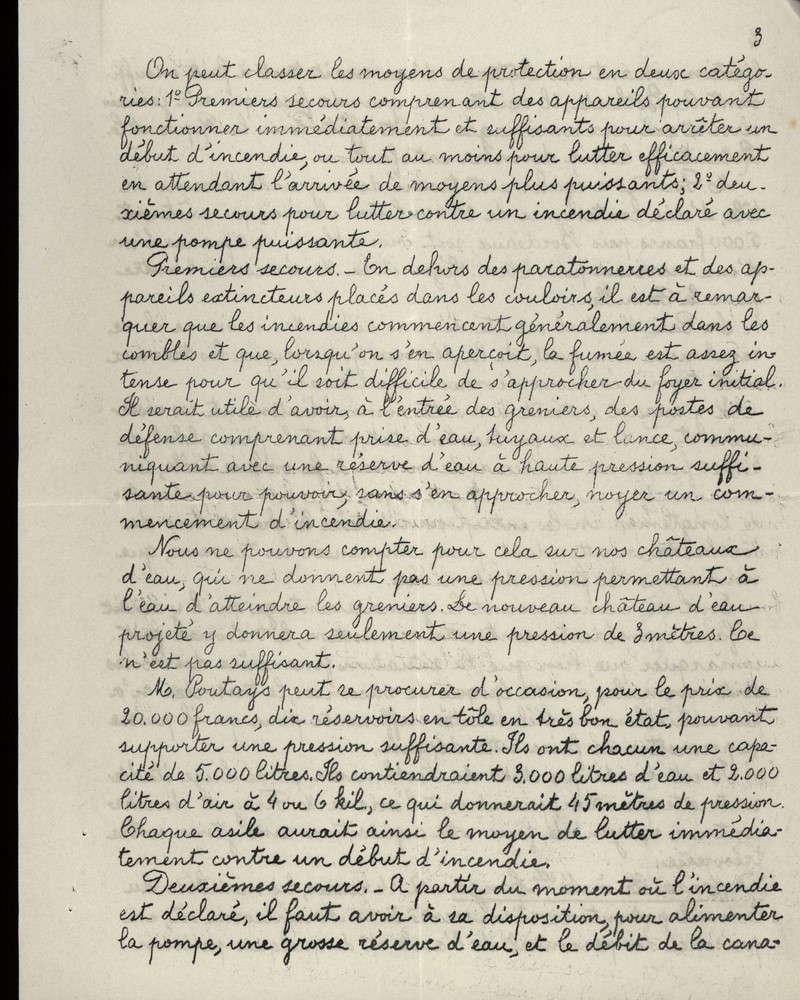 3
On peut classer les moyens de protection en deux catégo-
ries: 1º Premiers secours comprenant des appareils pouvant
fonctionner immédiatement et suffisants pour arrêter un
début d'incendie, ou tout au moins pour lutter efficacement
en attendant l'arrivée de moyens plus puissants; 2º deu-
xièmes secours pour lutter contre un incendie déclaré avec
une pompe puissante.
Premiers secours. - En dehors des paratonnerres et des ap-
pareils extincteurs placés dans les couloirs, il est à remar-
quer que les incendies commencent généralement dans les
combles et que, lorsqu'on s'en aperçoit, la fumée est assez in-
tense pour qu'il soit difficile de s'approcher du foyer initial.
Il serait utile d'avoir, à l'entrée des greniers, des postes de
défense comprenant prise d'eau, tuyaux et lance, commu-
niquant avec une réserve d'eau à haute pression suffi-
sante pour pouvoir, sans s'en approcher, noyer un com-
mencement d'incendie.
Nous ne pouvons compter pour cela sur nos châteaux
d'eau, qui ne donnent pas une pression permettant à
l'eau d'atteindre les greniers. Le nouveau château d'eau
projeté y donnera seulement une pression de 3 mètres. Ce
n'est pas suffisant.
M. Poutays peut se procurer d'occasion, pour le prix de
20.000 francs, dix réservoirs en tôle en très bon état, pouvant
supporter une pression suffisante. Ils ont chacun une capa-
cité de 5.000 litres. Ils contiendraient 3.000 litres d'eau et 2.000
litres d'air à 4 ou 6 kil., ce qui donnerait 45 mètres de pression.
Chaque asile aurait ainsi le moyen de lutter immédia-
tement contre un début d'incendie.
Deuxièmes secours. - A partir du moment où l'incendie
est déclaré, il faut avoir à sa disposition, pour alimenter
la pompe, une grosse réserve d'eau, et le débit de la cana-